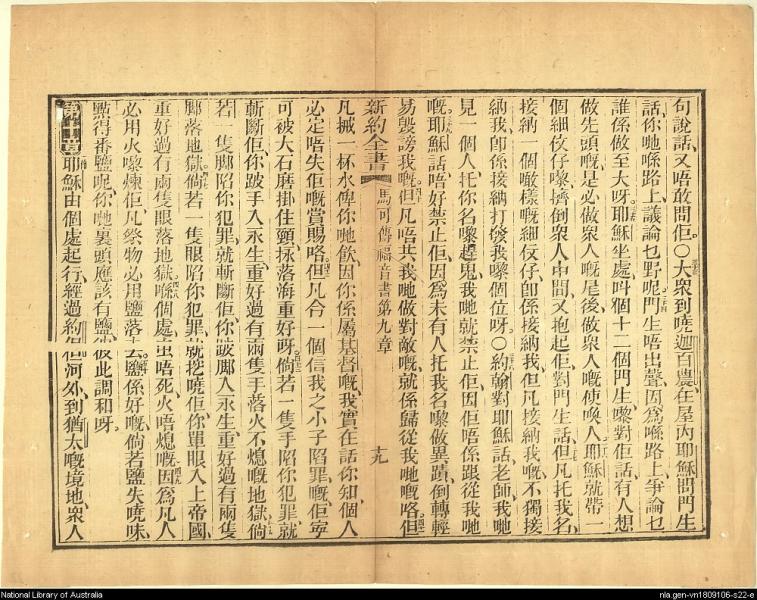 句說話、又唔敢問佢。○大衆到嘵迦百農、在屋內、耶穌問門生
話、你哋喺路上議論乜野呢、門生唔出聲、因爲喺路上爭論乜
誰係做至大呀、耶穌坐處、叫個十二個門生嚟、對佢話、有人想
做先頭嘅、是必做衆人嘅尾後、做衆人嘅使喚人、耶穌就帶一
個細仔嚟、擠倒衆人中間、又抱起佢、對門生話、但凡托我名、
接納一個噉樣嘅細仔、卽係接納我、但凡接納我嘅、不獨接
納我、卽係接納打發我嚟個位呀。○約翰對耶穌話、老師、我哋
見一個人、托你名嚟趕鬼、我哋就禁止佢、因佢唔係跟從我哋
嘅、耶穌話、唔好禁止佢、因爲未有人托我名嚟做異蹟、倒轉輕
易毀謗我嘅、但凡唔共我哋做對敵嘅、就係歸從我哋嘅咯、但
新約全書 馬可傳福音書第九章 十九
凡搣一杯水俾你哋飲、因你係屬基督嘅、我實在話你知、個人
必定唔失佢嘅賞賜咯、但凡令一個信我之小子陷罪嘅、佢寧
可被大石磨掛住頸、拯落海重好呀、倘若一隻手陷你犯罪、就
斬斷佢、你跛手入永生、重好過有兩隻手落火不熄嘅地獄、倘
若一隻脚陷你犯罪、就斬斷佢、你跛脚入永生、重好過有兩隻
脚落地獄、倘若一隻眼陷你犯罪、就挖嘵佢、你單眼入上帝國、
重好過有兩隻眼落地獄、喺個處虫唔死、火唔熄嘅、因爲凡人
必用火嚟煉佢、凡祭物必用鹽落去、鹽係好嘅、倘若鹽失嘵味、
點得番鹽呢、你哋裏頭應該有鹽、彼此調和呀。
耶穌由個處起行、經過約但河外、到猶太嘅境地、衆人
National Library of Australia
nla.gen-vn1809106-s22-e